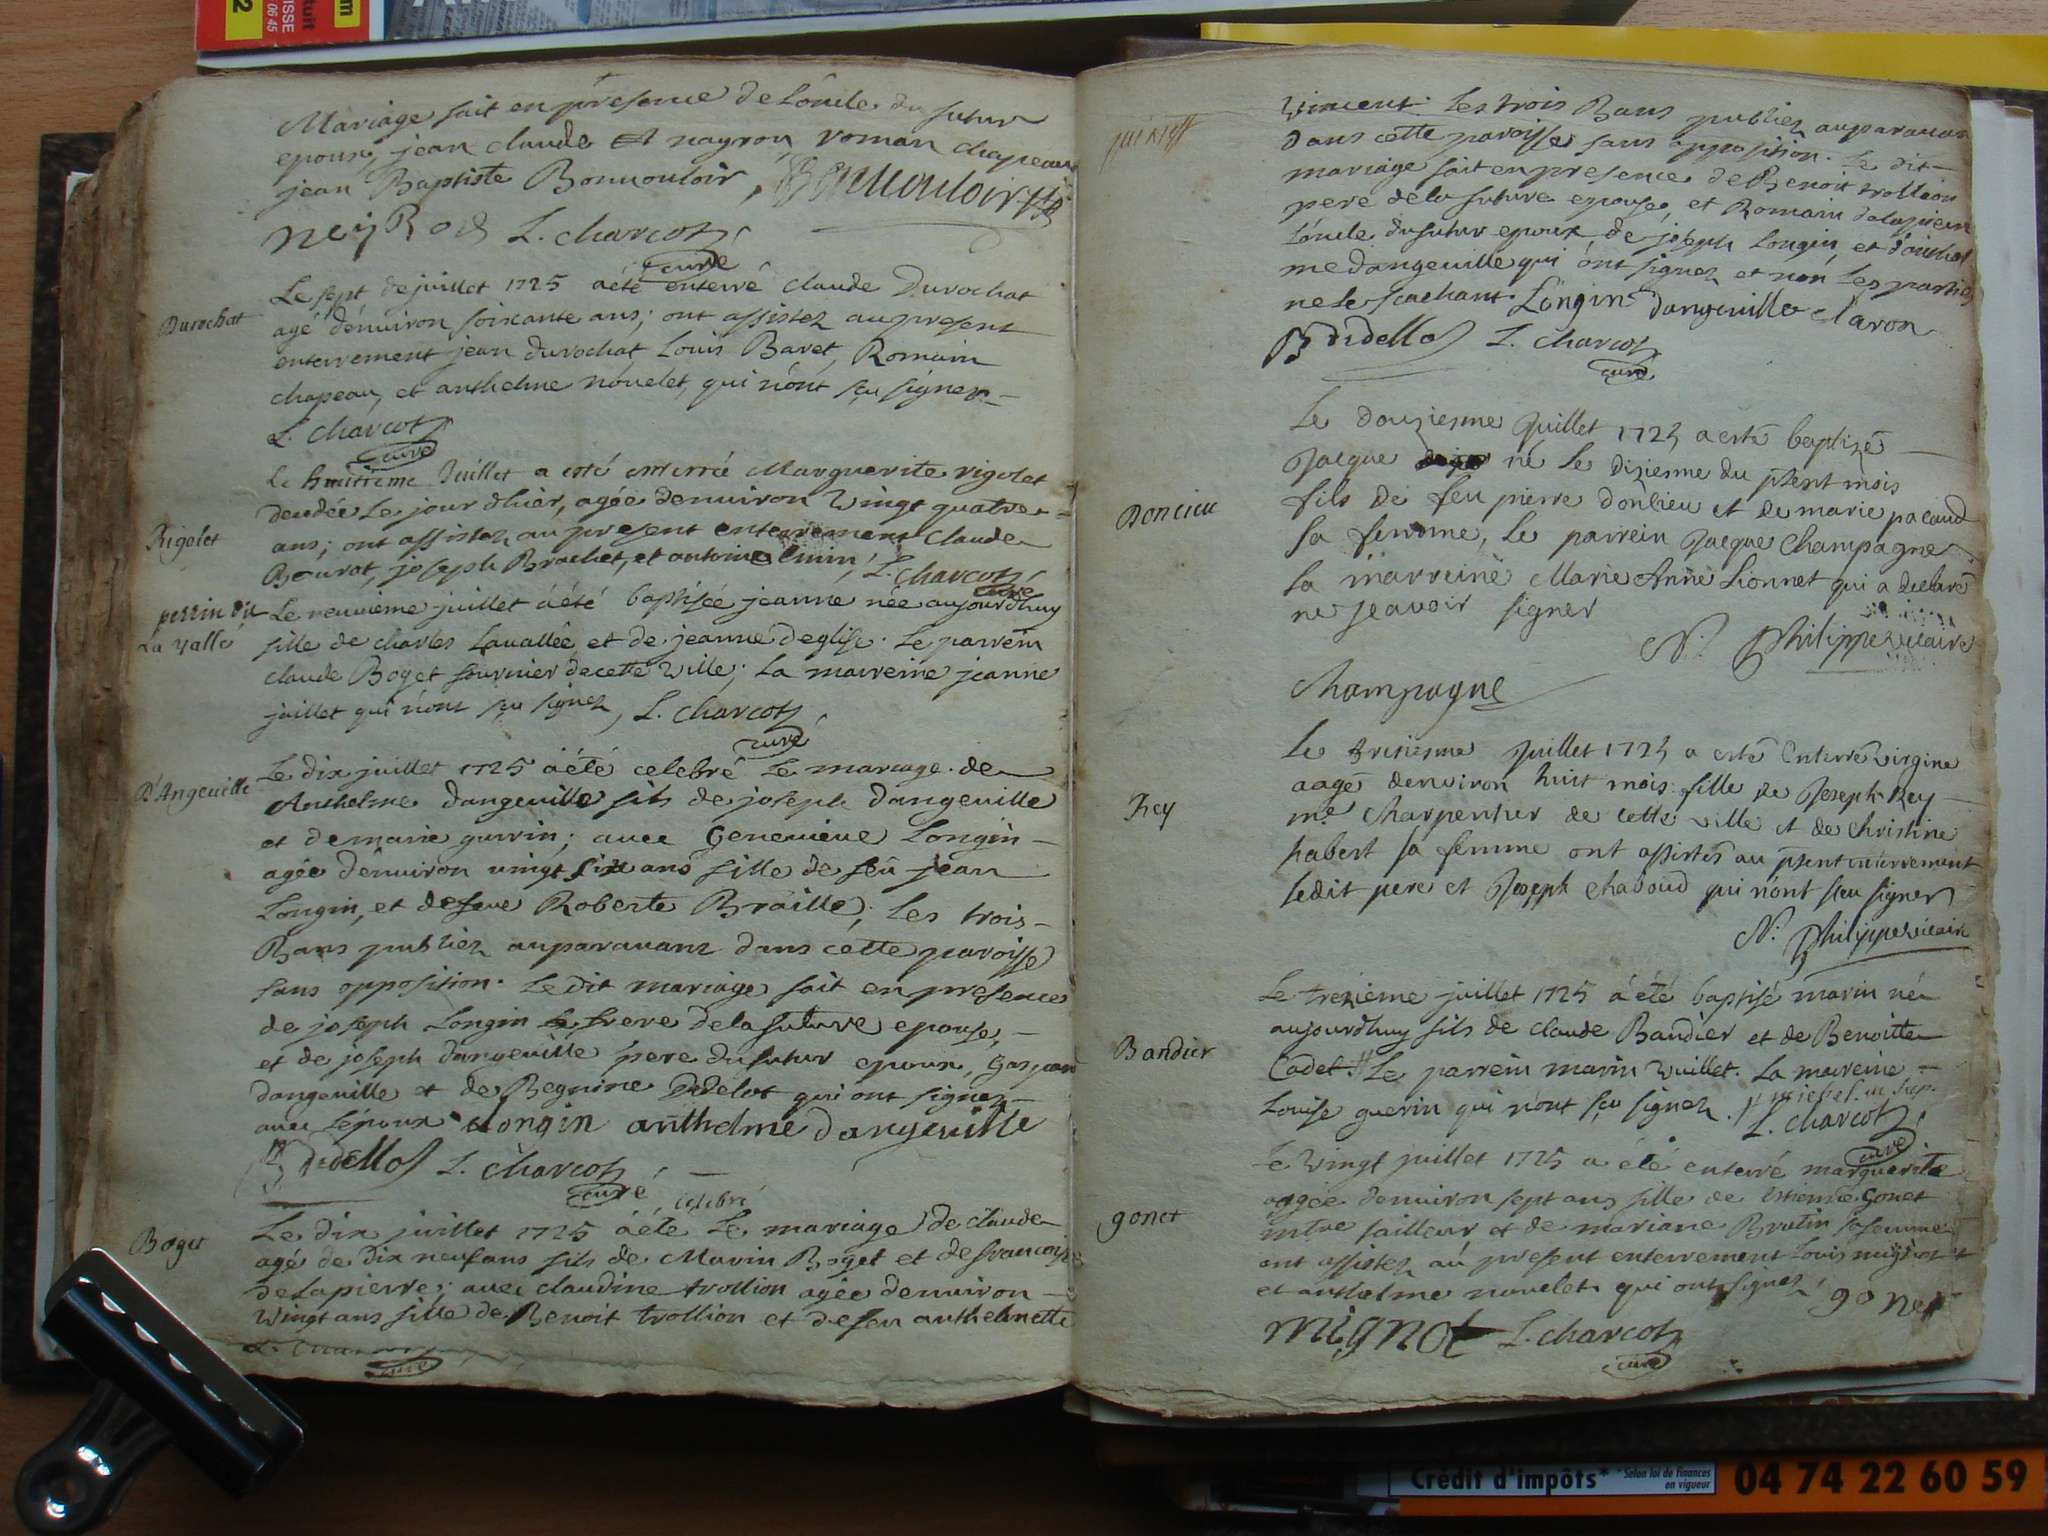 Mariage fait en presence de L'oncle du futur
epoux, jean claude et nagron, roman chapeau
jean Baptiste Bonuouloir, Bonuouloir
neyRod L. charcot
curé
Durochat
Le sept de juillet 1725 a été enterré claude Durochat
agé d'enuiron soixante ans; ont assistez au present
enterrement jean durochat, Louis Baret, Romain
chapeau, et anthelme nouelet, qui n'ont sçu signer
L. charcot
curé
Rigolet
Le huitieme Juillet a esté enterrée Marguerite rigolet
decedée Le jour d'hier, agée denuiron Vingt quatre
ans; ont assistez au present enterrement claude
Bourat, joseph Brachet, et antoine L. charcot
curé
perrin dit
La Vallé
Le neuuieme juillet a été baptisée jeanne née aujourdhuy
fille de charles Lauallée et de jeanne deglise. Le parrein
claude Boget fournier de cette Ville; La marreine jeanne
juillet qui n'ont sçu signer, L. charcot
curé
D'Angeuille
Le dix juillet 1725 a été celebré Le mariage de
Anthelme dangeuille fils de joseph dangeuille
et de marie guerin; auec Geneuieue Longin
agée d'enuiron uingt six ans fille de feû jean
Longin, et de feue Roberte Braille; Les trois
Bans publiez auparauant dans cette paroisse
sans opposition. Le dit mariage fait en presence
de joseph Longin frere de la future epouse,
et de joseph dangeuille pere du futur epoux, gaspar
dangeuille et de Regnine Didelot qui ont signez
auec L'epoux longin anthelme dangeuille
B didellot L. charcot
curé
Boget
celebré
Le dix juillet 1725 a été Le mariage de claude
agé de dix neuf ans fils de Marin Boget et de francoise
de Lapierre; auec claudine trollion agée denuiron
Vingt ans fille de Benoit trollion et de feu anthelmette
L. charcot
curé
Vincent. Les trois Bans publiez auparauant
dans cette paroisse sans opposition. Le dit
mariage fait en presence de Benoit trollion
pere de la future epouse, et Romain delapierre
L'oncle du futur epoux de joseph Longin, et d'anthel
me dangeuille qui ont signez et non les parties
ne le scachant. Longin dangeuille claron
B didellot L. charcot
curé
Doncieu
Le douziesme Juillet 1725 a esté baptizé
Jacque né le dixiesme du pñt mois
fils de feu pierre donlieu et de marie pacaud
sa femme, Le parrein Jacque Champagne
la marreine Marie Anne Lionnet qui a declaré
ne sçavoir signer
N. Philippe vicaire
Champagne
Rey
Le treisiesme Juillet 1725 a esté Enterré virgine
aagé denviron huit mois fille de Joseph Rey
mᵉ Charpentier de cette ville et de Christine
habert sa femme ont assistés au pñt enterrement
ledit pere et Joseph chaboud qui n'ont sceu signer
N. Philippe vicaire
Bandier
Le trezieme juillet 1725 a été baptisé marin né
aujourdhuy fils de claude Bandier et de Benoitte
Cadet. Le parrein marin Vuillet. La marreine
Louise guerin qui n'ont sçu signer.
L. charcot
curé
gonet
Le Vingt juillet 1725 a été enterré marguerite
agée denuiron sept ans fille de Estienne Gonet
mtre tailleur et de mariane Brutin sa femme
ont assistez au present enterrement Louis mignot
et anthelme nouelet qui ont signez, gonet
mignot L. charcot
curé
Crédit d'impôts* *Selon loi de finances
en vigueur
04 74 22 60 59